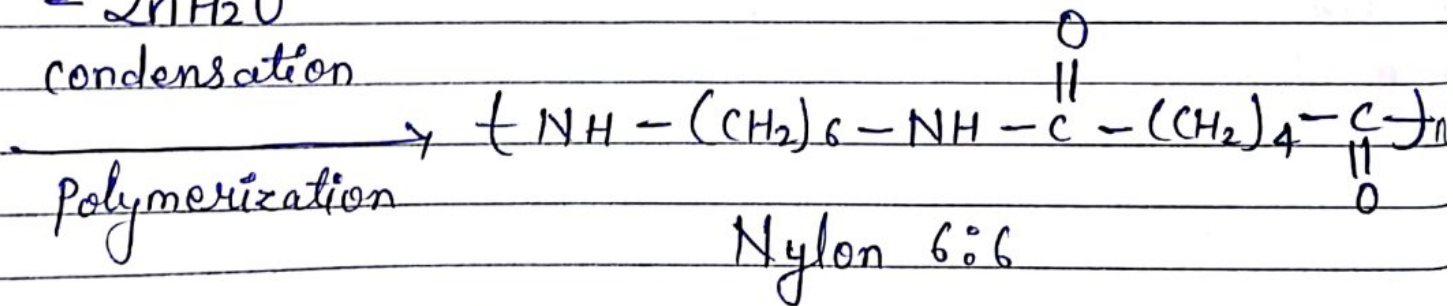 - 2nH2O
condensation
O
||
⟶ { NH - (CH2)6 - NH - C - (CH2)4 - C }n
||
O
Polymerization
Nylon 6:6